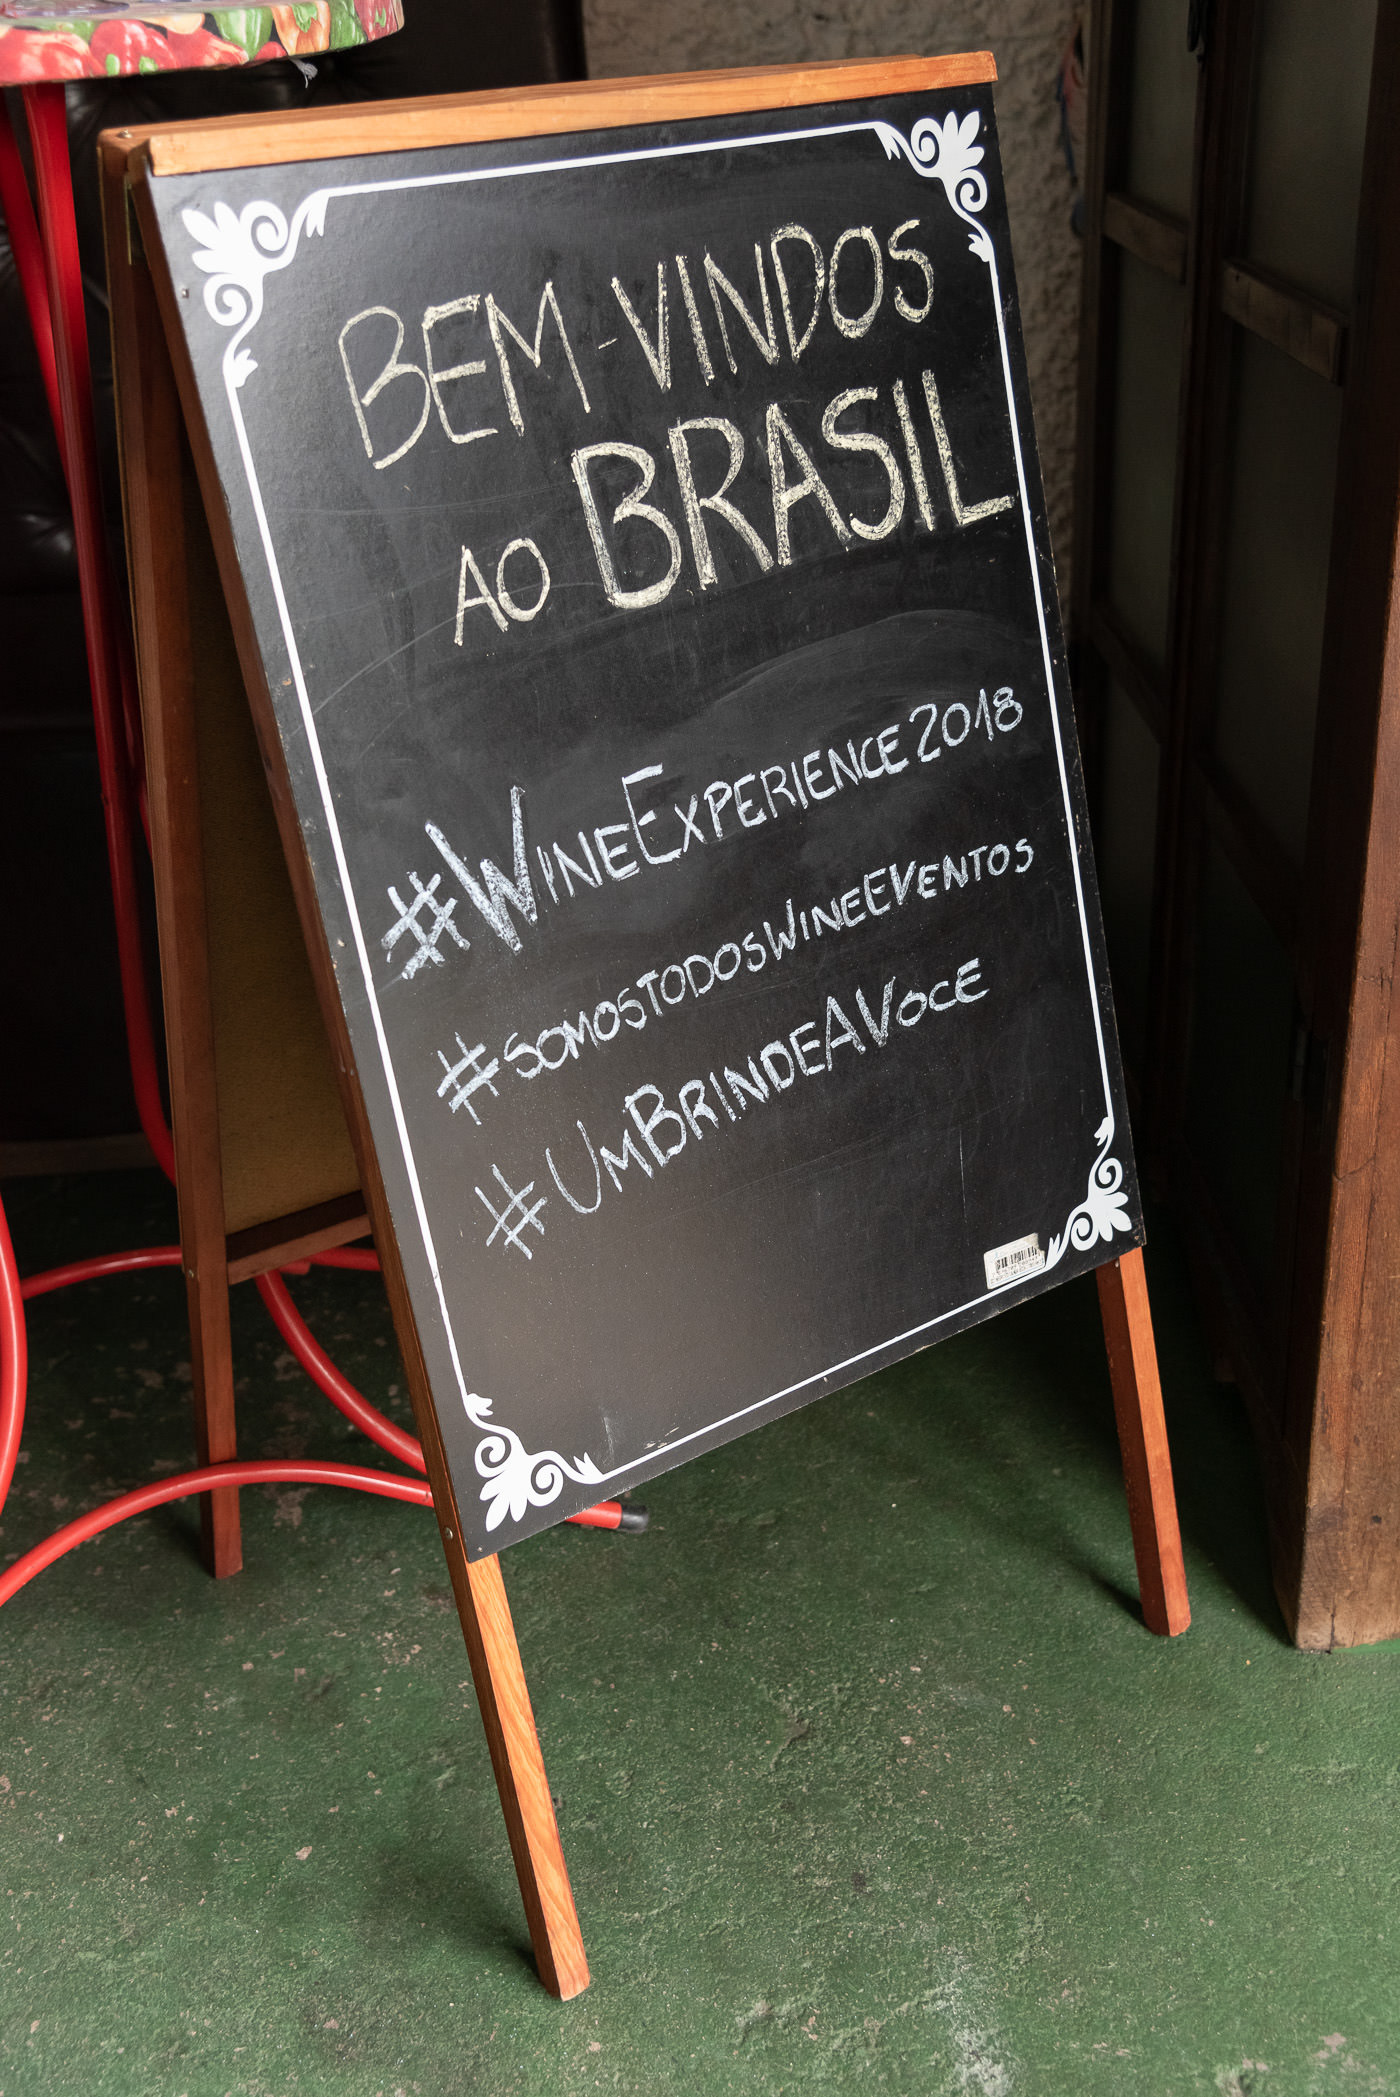 BEM-VINDOS
AO BRASIL
#WINEEXPERIENCE2018
#SOMOSTODOSWINEEVENTOS
#UMBRINDEAVOCE